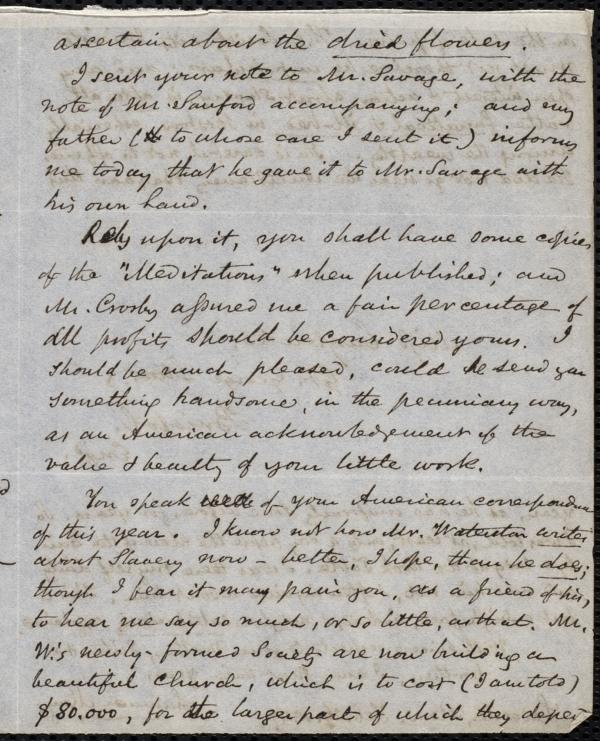 ascertain about the dried flowers.
I sent your note to Mr. Savage, with the
note of Mr. Sanford accompanying; and my
father (to whose care I sent it) informs
me today that he gave it to Mr. Savage with
his own hand.
Rely upon it, you shall have some copies
of the "Meditations" when published; and
Mr. Crosby assured me a fair percentage of
all profits should be considered yours. I
should be much pleased, could he send you
something handsome, in the pecuniary way,
as an American acknowledgement of the
value & beauty of your little work.
You speak of your American correspondence
of this year. I know not how Mr. Waterston writes
about Slavery now - better, I hope, than he does;
though I fear it may pain you, as a friend of his,
to hear me say so much, or so little, as that. Mr.
W.'s newly-formed Society are now building a
beautiful Church, which is to cost (I am told)
$80.000, for the larger part of which they depend